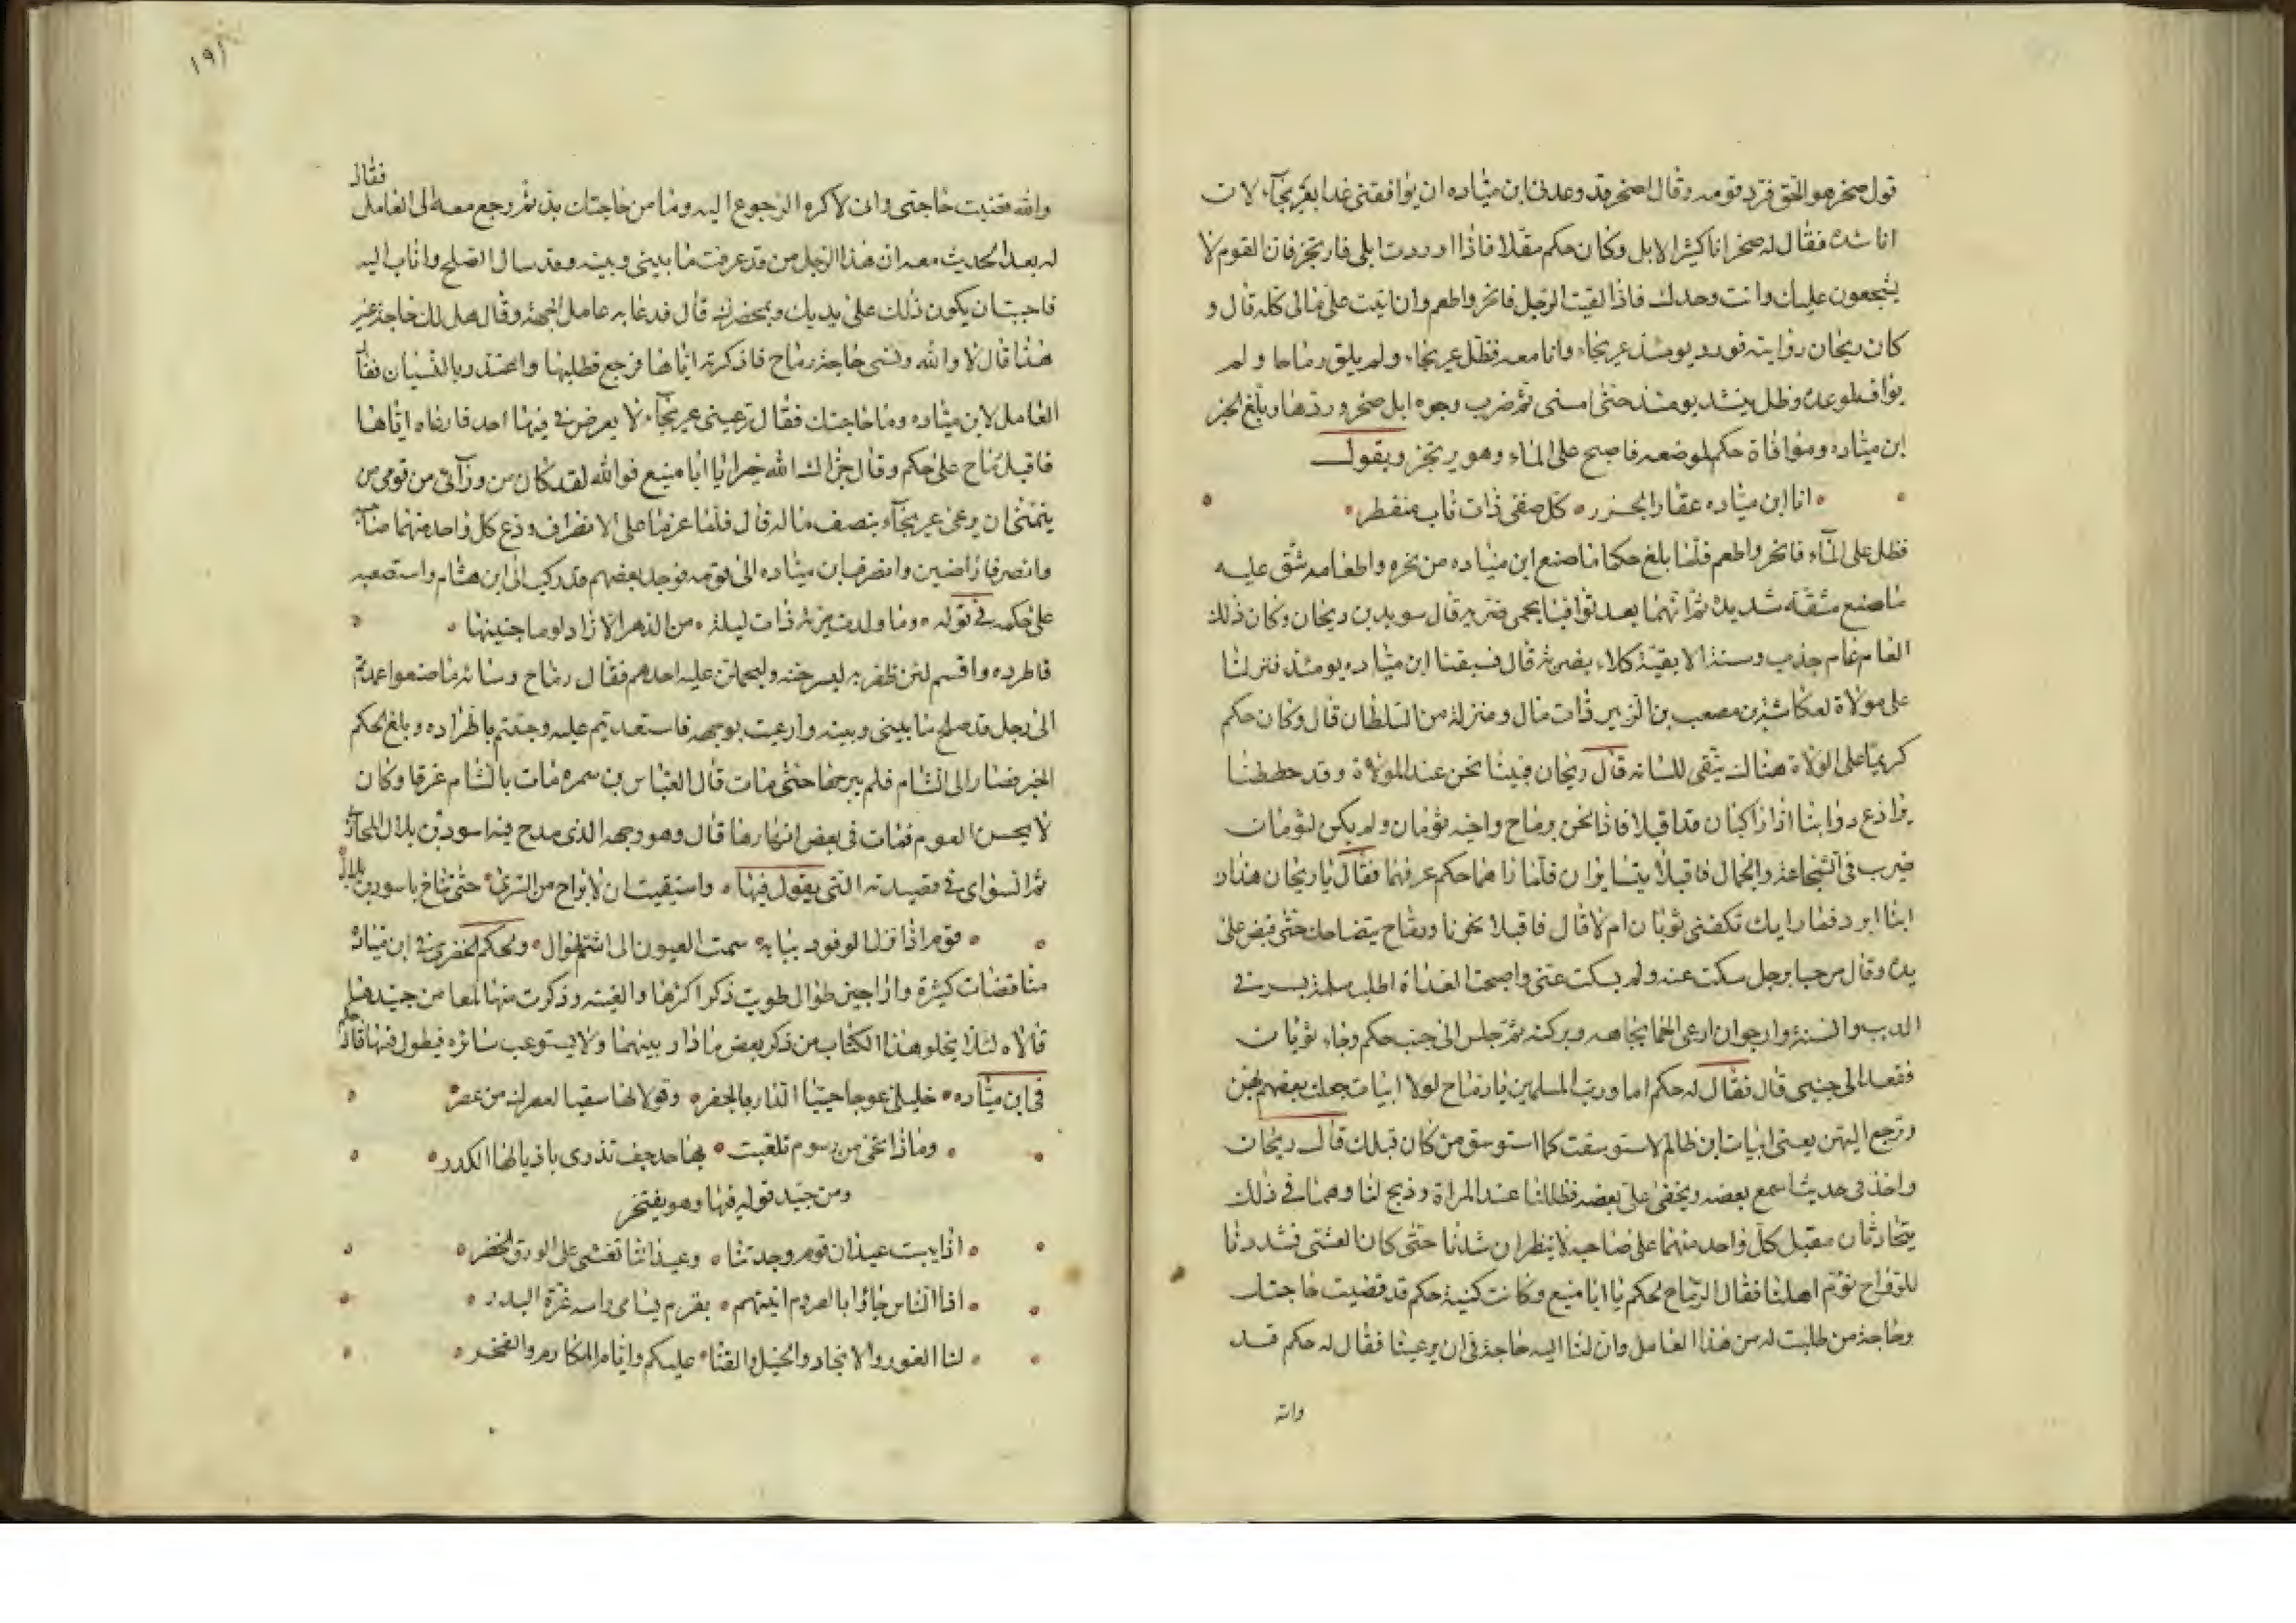 قول صخر هو الحق فرد قومه وقال لصخر قد وعدني ابن مياده ان يوافقني غدا بعريجاء لان
اناشده فقال له صخر انا كثير الابل وكان حكم مقلا فاذا وردت ابلي فارتجز فان القوم لا
يشجعون عليك وانت وحدك فاذا لقيت الرجل فانحر واطعم وان اتيت على مالي كله قال و
كان ريحان راويته فورد يومئذ عريجاء وانا معه فظل عريجاء ولم يلق رماحا ولم
يواف لموعده وظل ينشد يومئذ حتى امسى ثم ضرب وجوه ابل صخر وردها وبلغ الخبر
ابن مياده وموافاة حكم لموضعه فاصبح على الماء وهو يرتجز ويقول
انا ابن مياده عقار الجزر كل صفى ذات ناب منفطر
فظل على الماء فانحر واطعم فلما بلغ حكما ما صنع ابن مياده من نحره واطعامه شق عليه
ما صنع مشقة شديدة ثم انهما بعد توافيا بحمى ضريه قال سويد بن ريحان وكان ذلك
العام عام جذب وسنة الا بقية كلاء بضريه قال فسبقنا ابن مياده يومئذ فنزلنا
على مولاة لعكاشة بن مصعب بن الزبير ذات مال ومنزلة من السلطان قال وكان حكم
كريما على الولاة هناك يتقى للسانه قال ريحان فبينا نحن عند المولاة وقد حططنا
براذع دوابنا اذا راكبان قد اقبلا فاذا نحن برماح واخيه ثوبان ولم يكن لثوبان
ضرب في الشجاعة والجمال فاقبلا يتسايران فلما راهما حكم عرفهما فقال يا ريحان هذان
ابنا ابرد فما رايك تكفيني ثوبان ام لا قال فاقبلا نحونا ورماح يتضاحك حتى قبض على
يده وقال مرحبا برجل سكت عنه ولم يسكت عني واصبحت الغداة اطلب سلمه يسرنى
الذيب والسنة وارجو ان ارعى الحما بجاهه وبركته ثم جلس الى جنب حكم وجاء ثوبان
فقعد الى جنبي قال فقال له حكم اما ورب المرسلين يا رماح لولا ابيات جعلت تعتصم بهن
وترجع اليهن يعني ابيات ابن ظالم لاستوسقت كما استوسق من كان قبلك قال ريحان
واخذ في حديث اسمع بعضه ويخفى على بعضه فظللنا عند المراة وذبح لنا وهما في ذلك
يتحادثان مقبل كل واحد منهما على صاحبه لا ينظران شدنا حتى كان العشى فشددنا
للرواح نؤم اهلنا فقال الرماح لحكم يا ابا منيع وكانت كنية حكم قد قضيت حاجتك
وحاجة من طلبت له من هذا العامل وان لنا اليه حاجة في ان يرعينا فقال له حكم قد
والله
١٩١
والله قضيت حاجتي واني لاكره الرجوع اليه وما من حاجتك بد ثم رجع معه الى العامل فقال
له بعد الحديث معه ان هذا الرجل من قد عرفت ما بيني وبينه وقد سال الصلح واناب اليه
فاحببت ان يكون ذلك على يديك وبمحضرك قال فدعا به عامل الجهة وقال هل لك حاجة غير
هذا قال لا والله ونسى حاجة رماح فاذكرته اياها فرجع فطلبها واعتذر بالنسيان فقال
العامل لابن مياده وما حاجتك فقال ترعيني عريجاء لا يعرض لي فيها احد فارعاه اياها
فاقبل رماح على حكم وقال جزاك الله خيرا يا ابا منيع فوالله لقد كان من ورآئي من قومي من
يتمنى ان يرعى عريجاء بنصف ماله قال فلما عزما على الانصراف ودع كل واحد منهما صاحبه
وانصرفا راضيين وانصرف ابن مياده الى قومه فوجد بعضهم قد ركب الى ابن هشام واستصعبه
على حكم في قوله وما ولدت مريه ذات ليلة من الدهر الا زاد لوما جنينها
فاطرده واقسم لئن ظفر به ليسرجنه وليحملن عليه احدهم فقال رماح وساءه ما صنعوا عمدتم
الى رجل قد صلح ما بيني وبينه وارعيت بوجهه فاستعديتم عليه وجئتم باطراده وبلغ الحكم
الخبر فصار الى الشام فلم يبرحها حتى مات قال العباس بن سمره مات بالشام غرقا وكان
لا يحسن العوم فمات في بعض انهارها قال وهو وجهه الذي مدح فيه اسود بن بلال المحاربي
ثم السواى في قصيدته التي يقول فيها واستيقنت ان لا براح من السرى حتى تناخ باسود بن بلال
قوم اذا نزل الوفود ببابه سمت العيون الى اشم طوال ولحكم الخضري في ابن مياده
مناقضات كثيرة واراجيز طوال طويت ذكر اكثرها والغيته وذكرت منها لمعا من جيد ما
قالاه لئلا يخلو هذا الكتاب من ذكر بعض ما دار بينهما ولا يستوعب سائره فيطول فمنها قال حكم
في ابن مياده خليلي عوجا حييا الدار بالجفر وقولا لها سقيا لعصرك من عصر
وماذا تحيى من رسوم تلاعبت بها حرجف تذرى باذيالها الكدر
ومن جيد قوله فيها وهو يفتخر
اذا يبست عيدان قوم وجدتنا وعيداننا تغشى على الورق الخضر
اذا الناس جاؤا بالقروم اتيتهم بقرم يسامى راسه غرة البدر
لنا الغور والانجاد والخيل والقنا عليكم وايام المكارم والفخر